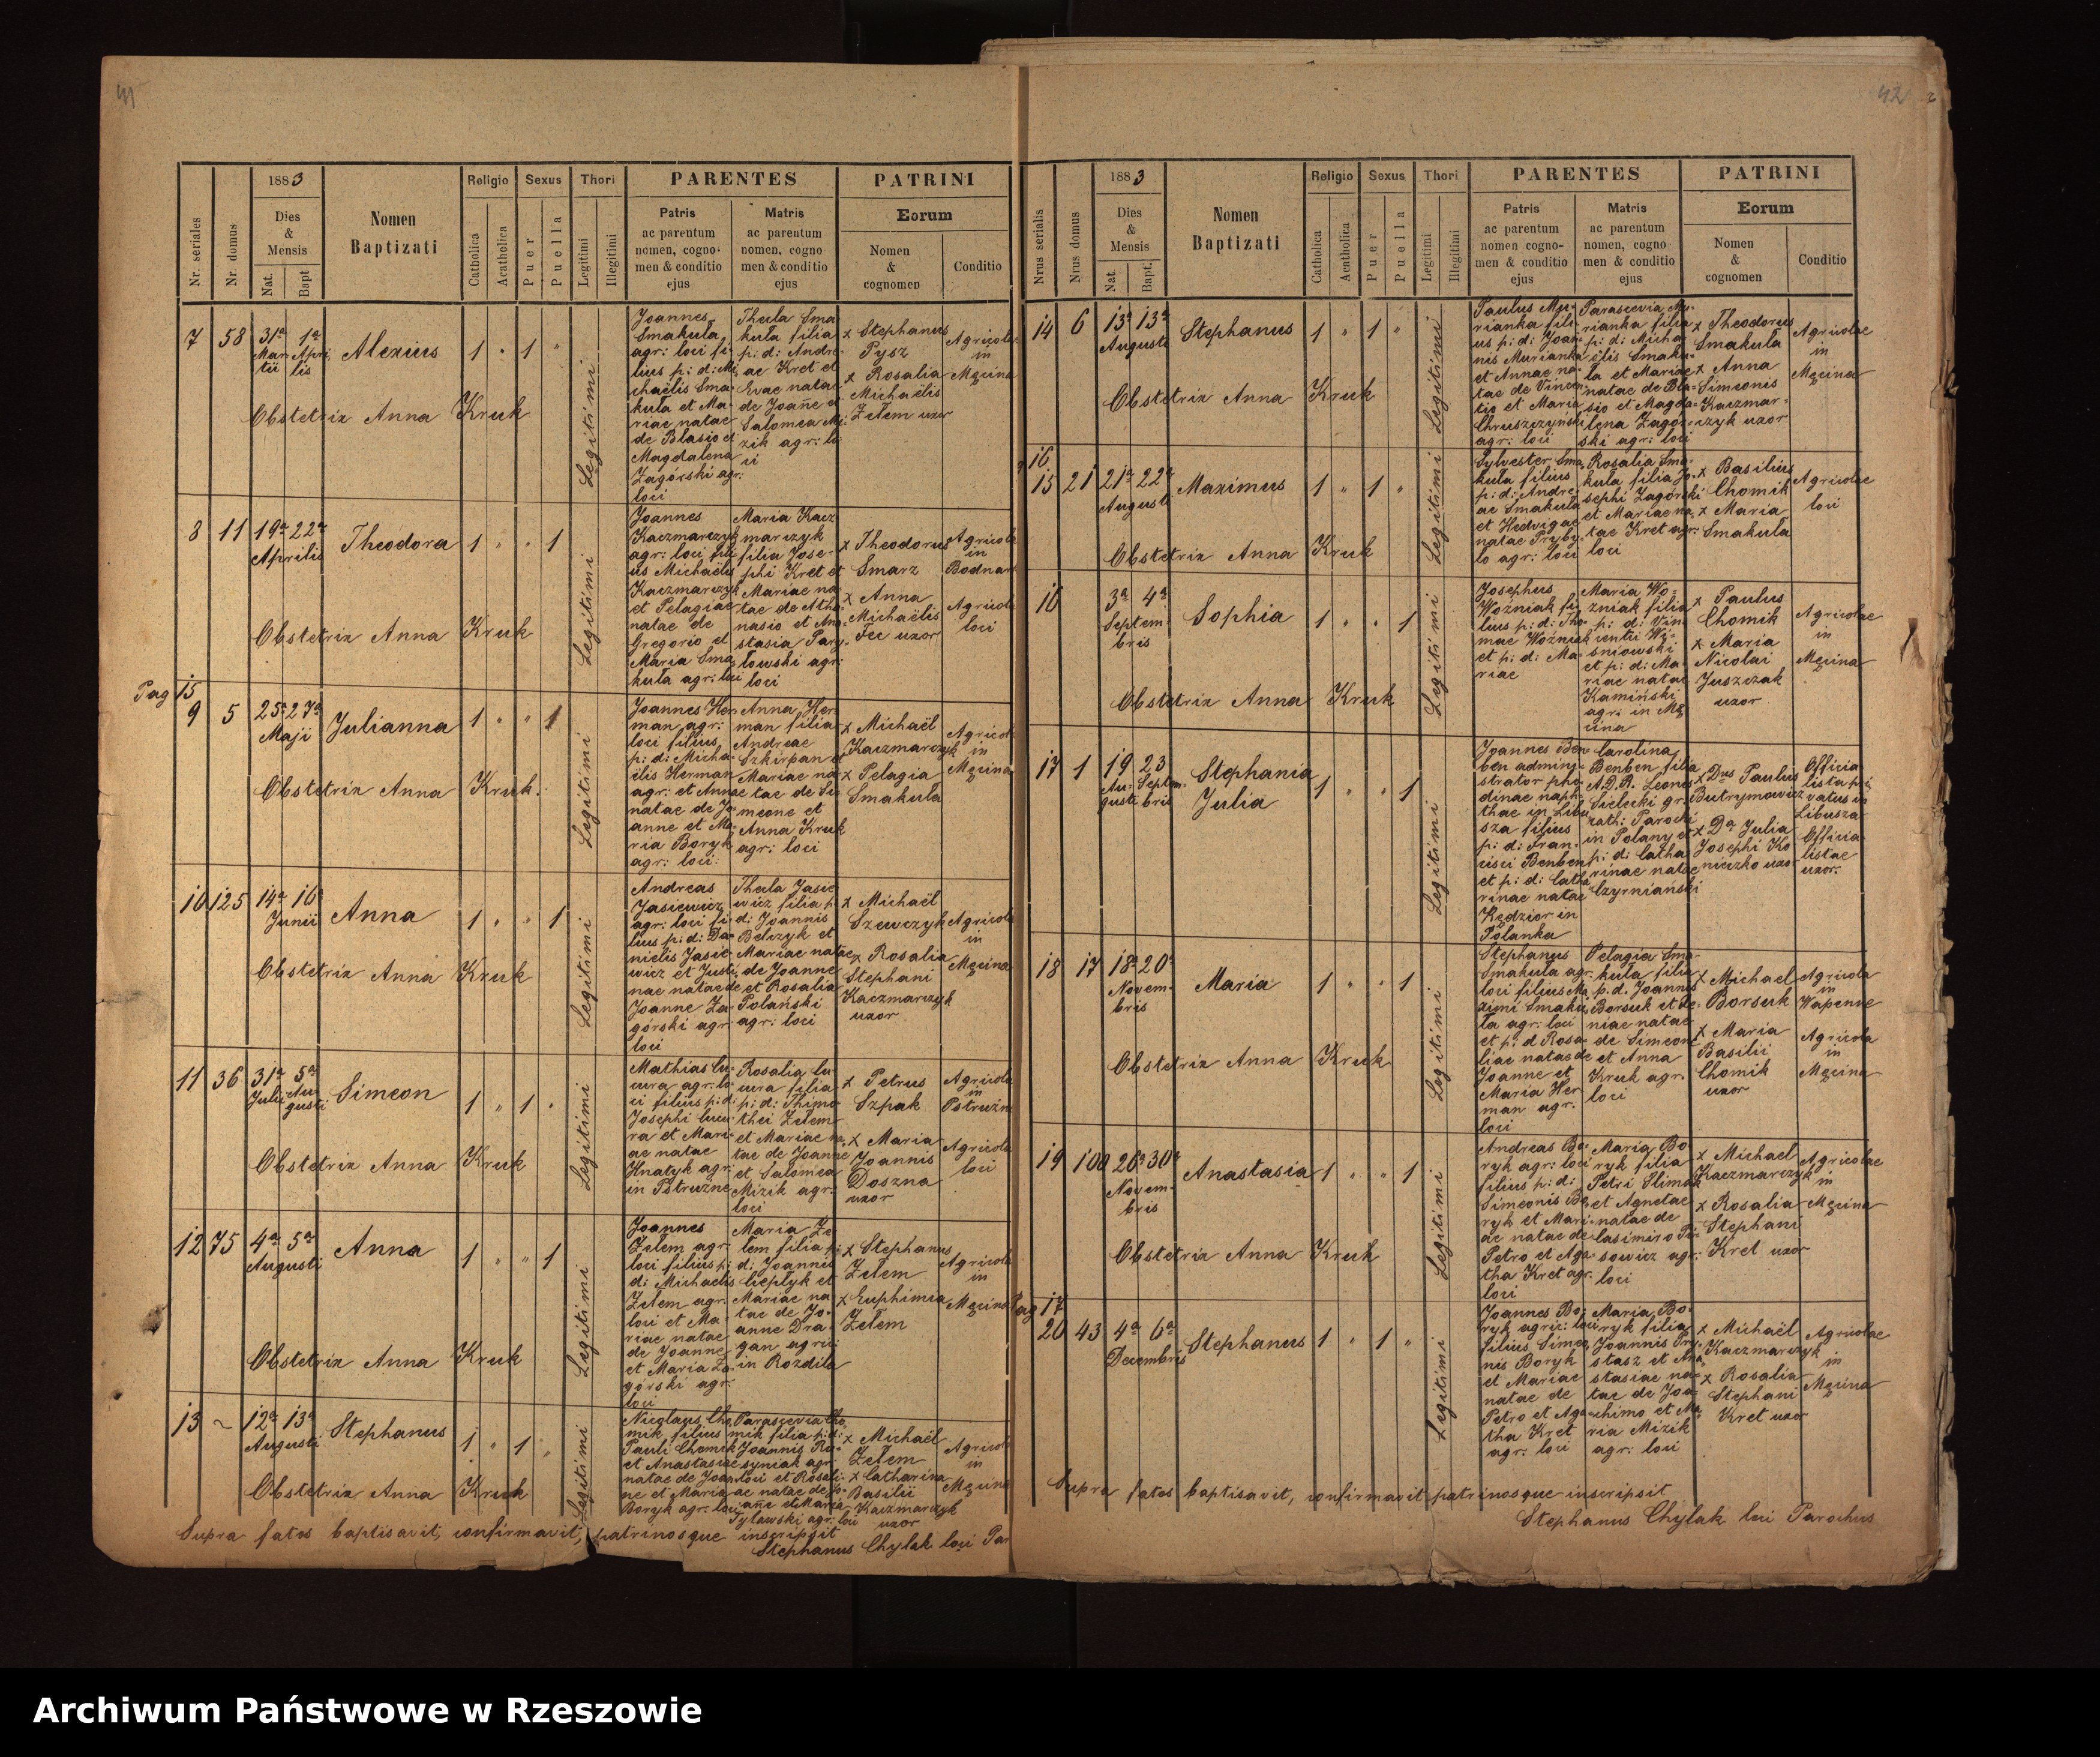 41
1883
Nr. seriales
Nr. domus
Dies
&
Mensis
Nat.
Bapt
Nomen
Baptizati
Religio
Catholica
Acatholica
Sexus
Puer
Puella
Thori
Legitimi
Illegitimi
PARENTES
Patris
ac parentum
nomen, cogno-
men & conditio
ejus
Matris
ac parentum
nomen, cogno
men & conditio
ejus
PATRINI
Eorum
Nomen
&
cognomen
Conditio
7 58 31a Martii 1a Aprilis Alexius 1 " 1 "
Legitimi
Joannes
Smakuła
agr: loci fi-
lius p: d: Mi
chaëlis Sma-
kuła et Ma-
riae natae
de Blasio et
Magdalena
Zagórski agr:
loci
Thecla Sma
kuła filia
p: d: Andre-
ae Kret et
Evae natae
de Joanne et
Salomea Mi-
zik agr: lo-
ci
x Stephanus
Pysz
x Rosalia
Michaëlis
Zełem uxor
Agricolae
in
Męcina
Obstetrix Anna Kruk
8 11 19a 22a Aprilis Theodora 1 " " 1
Legitimi
Joannes
Kaczmarczyk
agr: loci fili
us Michaëlis
Kaczmarczyk
et Pelagiae
natae de
Gregorio et
Maria Sma
kuła agr: loci
Maria Kacz
marczyk
filia Jose-
phi Kret et
Mariae na
tae de Atha
nasio et Ana
stasia Pary
łowski agr:
loci
x Theodorus
Smarz
x Anna
Michaëlis
Fec uxor
Agricola
in
Bodnar
Agricola
loci
Obstetrix Anna Kruk
Pag 15
9 5 25a 27a Maji Julianna 1 " " 1
Legitimi
Joannes Her
man agr:
loci filius
p: d: Micha-
ëlis Herman
agr: et Annae
natae de Jo
anne et Ma-
ria Boryk
agr: loci:
Anna Her-
man filia
Andreae
Szkirpan et
Mariae na
tae de Si
meone et
Anna Kruk
agr: loci
x Michaël
Kaczmarczyk
x Pelagia
Smakuła
Agricolae
in
Męcina
Obstetrix Anna Kruk.
10 125 14a 16a Junii Anna 1 " " 1
Legitimi
Andreas
Jasiewicz
agr: loci fi-
lius p: d: Da-
nielis Jasie
wicz et Justi
nae natae de
Joanne Za-
górski agr:
loci
Thecla Jasie
wicz filia p:
d: Joannis
Belczyk et
Mariae natae
de Joanne
et Rosalia
Polański
agr: loci
x Michaël
Szewczyk
x Rosalia
Stephani
Kaczmarczyk
uxor
Agricolae
in
Męcina
Obstetrix Anna Kruk
11 36 31a Julii 5a Augusti Simeon 1 " 1 "
Legitimi
Mathias Cu-
cura agr: lo
ci filius p: d:
Josephi Cucu
ra et Mari-
ae natae
Hnatyk agr:
in Pstrużne
Rosalia Cu
cura filia
p: d: Thimo
thei Zełem
et Mariae na
tae de Joanne
et Salomea
Mizik agr:
loci
x Petrus
Szpak
x Maria
Joannis
Doszna
uxor
Agricola
in
Pstrużne
Agricola
loci
Obstetrix Anna Kruk
12 75 4a 5a Augusti Anna 1 " " 1
Legitimi
Joannes
Zełem agr.
loci filius p:
d: Michaelis
Zełem agr.
loci et Ma
riae natae
de Joanne
et Maria Za-
górski agr:
loci
Maria Ze
łem filia p:
d: Joannis
Ciepłyk et
Mariae na
tae de Jo-
anne Dra-
gan agri:
in Rozdile
x Stephanus
Zełem
x Euphimia
Zełem
Agricolae
in
Męcina
Obstetrix Anna Kruk
13 ~ 12a 13a Augusti Stephanus 1 " 1 "
Legitimi
Nicolaus Cho
mik filius
Pauli Chomik
et Anastasiae
natae de Joan
ne et Maria
Boryk agr. loci
Parascevia Cho
mik filia p: d:
Joannis Ru-
syniak agr:
loci et Rosali-
ae natae de Jo-
anne et Maria
Tylawski agr: loci
x Michaël
Zełem
x Catharina
Basilii
Kaczmarczyk
uxor
Agricolae
in
Męcina
Obstetrix Anna Kruk
Supra fatos baptisavit, confirmavit, patrinosque inscripsit
Stephanus Chylak loci Par
42
1883
Nrus serialis
Nrus domus
Dies
&
Mensis
Nat
Bapt.
Nomen
Baptizati
Religio
Catholica
Acatholica
Sexus
Puer
Puella
Thori
Legitimi
Illegitimi
PARENTES
Patris
ac parentum
nomen cogno-
men & conditio
ejus
Matris
ac parentum
nomen, cogno
men & conditio
ejus
PATRINI
Eorum
Nomen
&
cognomen
Conditio
14 6 13a 13a Augusti Stephanus 1 " 1 "
Legitimi
Paulus Mu-
rianka fili-
us p: d: Joan-
nis Murianka
et Annae na-
tae de Vincen-
tio et Maria
Chruszczyński
agr: loci
Parascevia Mu-
rianka filia
p: d: Micha
ëlis Smaku-
ła et Mariae
natae de Bla-
sio et Magda-
lena Zagór-
ski agr: loci
x Theodorus
Smakuła
x Anna
Simeonis
Kaczmar-
czyk uxor
Agricolae
in
Męcina
Obstetrix Anna Kruk
16
15 21 21a 22a Augusti Maximus 1 " 1 "
Legitimi
Sylvester Sma
kuła filius
p: d: Andre-
ae Smakuła
et Hedvigae
natae Pryby-
lo agr: loci
Rosalia Sma-
kuła filia Jo-
sephi Zagórski
et Mariae na
tae Kret agr:
loci
x Basilius
Chomik
x Maria
Smakuła
Agricolae
loci
Obstetrix Anna Kruk
16 3a 4a Septembris Sophia 1 " " 1
Legitimi
Josephus
Woźniak fi
lius p: d: Tho-
mae Woźniak
et p: d: Ma-
riae
Maria Wo-
zniak filia
p: d: Vin
centii Wi-
śniowski
et p: d: Ma-
riae natae
Kamiński
agr. in Mę
cina
x Paulus
Chomik
x Maria
Nicolai
Juszczak
uxor
Agricolae
in
Męcina
Obstetrix Anna Kruk
17 1 19 Augusti 23 Septembris Stephania
Julia 1 " " 1
Legitimi
Joannes Ben-
ben admini-
strator pho
dinae naph-
thae in Libu
sza filius
p: d: Fran-
cisci Benben
et p: d: Catha
rinae natae
Kędzior in
Polanka
Carolina
Benben filia
A.D.R. Leonis
Sielecki gr.
rath: Parochi
in Polany et
p: d: Catha
rinae natae
Czyrniański
x Dnus Paulus
Butrymowicz
x Da Julia
Josephi Ko
niczko uxor
Officia
lista pri
vatus in
Libusza
Officia-
listae
uxor.
18 17 18a 20a Novembris Maria 1 " " 1
Legitimi
Stephanus
Smakuła agr.
loci filius Ma
ximi Smaku
ła agr: loci
et p: d Rosa-
liae natae de
Joanne et
Maria Her
man agr.
loci
Pelagia Sma-
kuła filia
p. d. Joannis
Borsuk et Xe-
niae natae
de Simeone
et Anna
Kruk agr.
loci
x Michael
Borsuk
x Maria
Basilii
Chomik
uxor
Agricola
in
Wapenne
Agricola
in
Męcina
Obstetrix Anna Kruk
19 100 26a 30a Novembris Anastasia 1 " " 1
Legitimi
Andreas Bo-
ryk agr: loci
filius p: d:
Simeonis Bo
ryk et Mari-
ae natae de
Petro et Aga
tha Kret agr.
loci
Maria Bo
ryk filia
Petri Slimak
et Agnetae
natae de
Casimiro
sowicz agr:
loci
x Michael
Kaczmarczyk
x Rosalia
Stephani
Kret uxor
Agricolae
in
Męcina
Obstetrix Anna Kruk
Pag 17
20 43 4a 6a Decembris Stephanus 1 " 1 "
Legitimi
Joannes Bo-
ryk agric: loci
filius Simeo
nis Boryk
et Mariae
natae de
Petro et Aga-
tha Kret
agr: loci
Maria Bo-
ryk filia
Joannis Pry-
stasz et Ana
stasiae na-
tae de Joa-
chimo et Ma
ria Mizik
agr: loci
x Michaël
Kaczmarczyk
x Rosalia
Stephani
Kret uxor
Agricolae
in
Męcina
Supra fatos baptisavit, confirmavit patrinosque inscripsit
Stephanus Chylak loci Parochus
Archiwum Państwowe w Rzeszowie